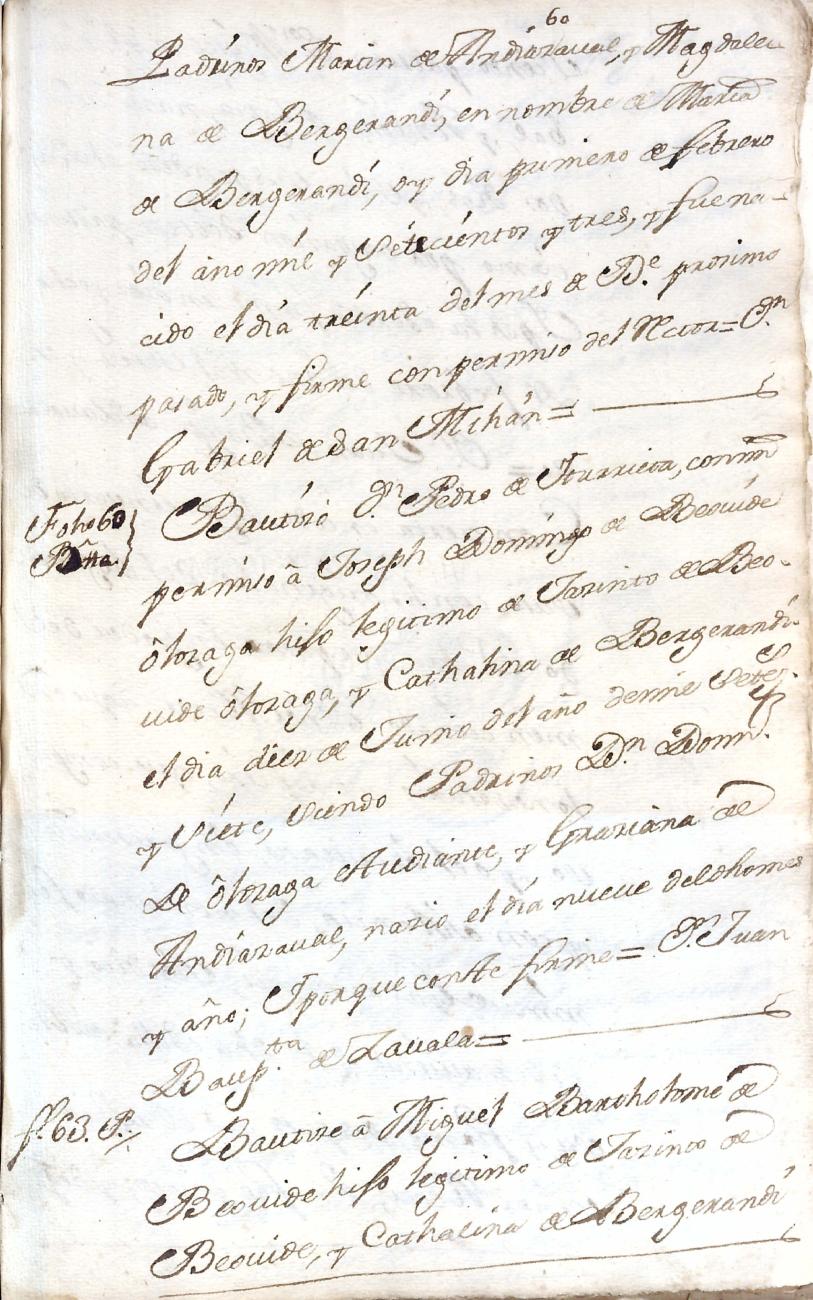 60
Padrinos Martin de Andiazaval, y Magdale
na de Bergerandi, en nombre de Maria
de Bergerandi, oy dia primero de febrero
del año mil y Setecientos y tres, y fue na-
cido el dia treinta del mes de De. proximo
pasado, y firme con permiso del Rector= Dn.
Gabriel de San Mihàn=
Bautizò Dn Pedro de Iturrieta, con mi
Folio 60
Btta.
permiso â Joseph Domingo de Beovide
ôlozaga hijo legitimo de Jazinto de Beo-
vide ôlozaga, y Cathalina de Bergerandi
el dia diez de Junio del año de mil Setes.
y Siete, Siendo Padrinos Dn Domo.
de ôlozaga Audiante, y Graziana de
Andiazaval, nazio el dia nueve del dho mes
y año; Y porque conste firme= Dn. Juan
Baupta. de Zavala=
fo. 63. P.
Bautize â Miguel Bartholome de
Beovide hijo legitimo de Jazinto de
Beovide, y Cathalina de Bergerandi